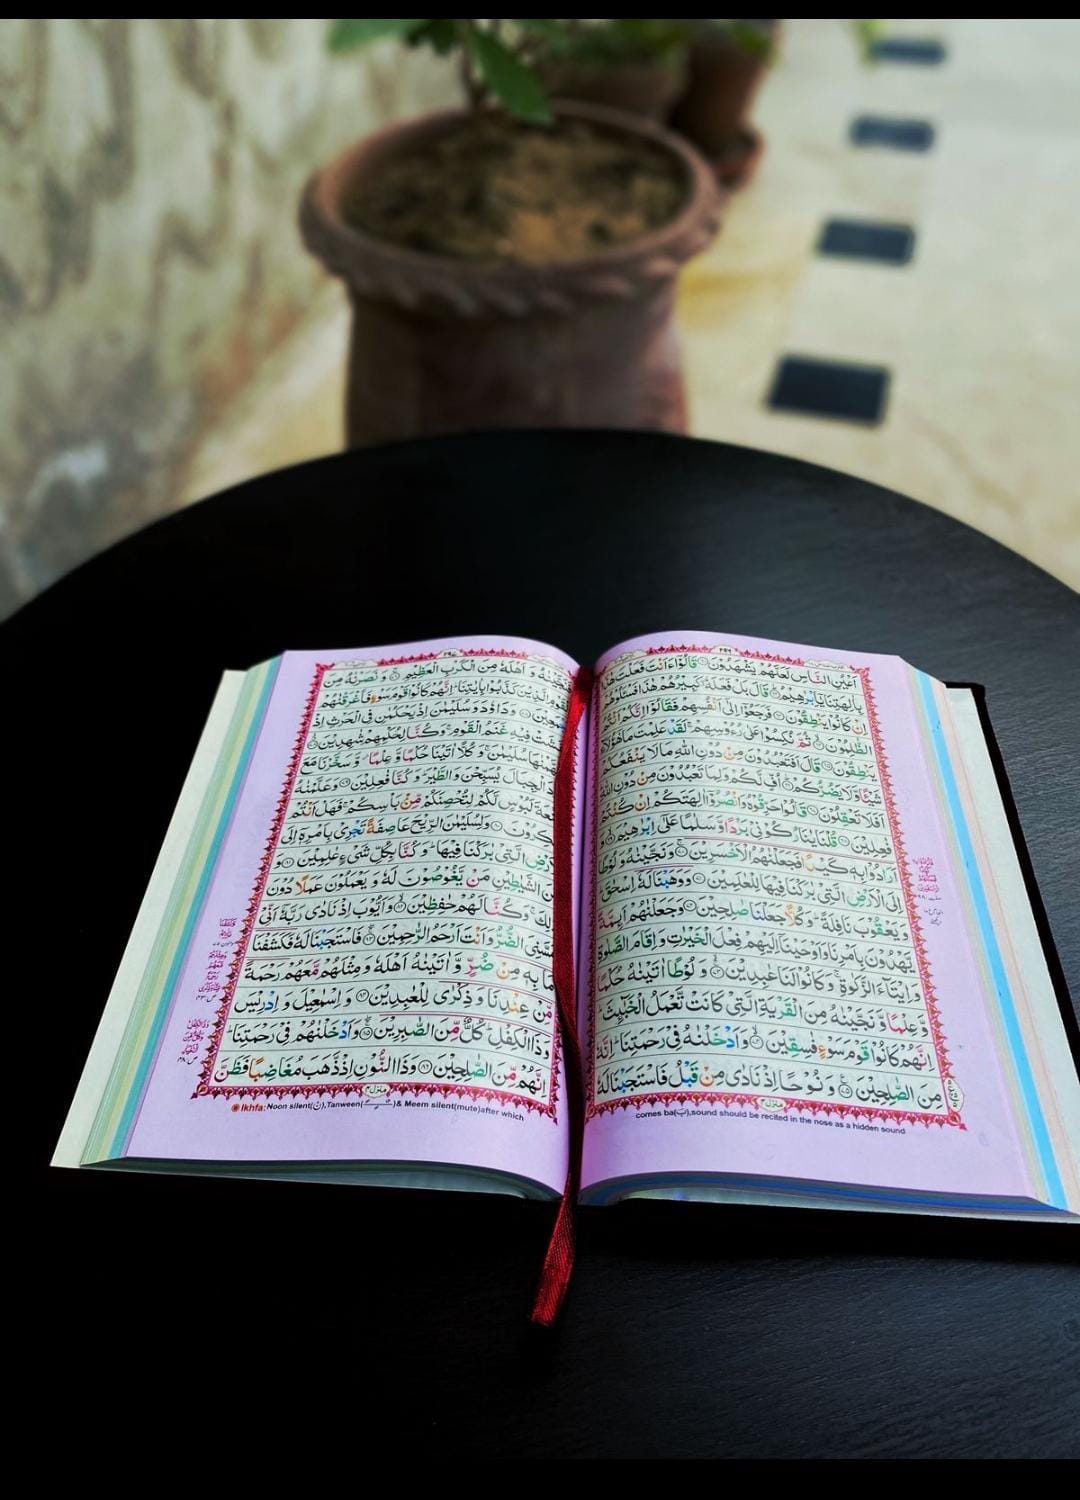 اَعْيُنِ النَّاسِ لَعَلَّهُمْ يَشْهَدُوْنَ ۝ قَالُوْٓا ءَاَنْتَ فَعَلْتَ هٰذَا
بِاٰلِهَتِنَا يٰٓاِبْرٰهِيْمُ ۝ قَالَ بَلْ فَعَلَهٗ كَبِيْرُهُمْ هٰذَا فَسْـَٔلُوْهُمْ
اِنْ كَانُوْا يَنْطِقُوْنَ ۝ فَرَجَعُوْٓا اِلٰٓى اَنْفُسِهِمْ فَقَالُوْٓا اِنَّكُمْ اَنْتُمُ
الظّٰلِمُوْنَ ۝ ثُمَّ نُكِسُوْا عَلٰى رُءُوْسِهِمْ لَقَدْ عَلِمْتَ مَا هٰٓؤُلَآءِ
يَنْطِقُوْنَ ۝ قَالَ اَفَتَعْبُدُوْنَ مِنْ دُوْنِ اللّٰهِ مَا لَا يَنْفَعُكُمْ
شَيْـًٔا وَّلَا يَضُرُّكُمْ ۝ اُفٍّ لَّكُمْ وَلِمَا تَعْبُدُوْنَ مِنْ دُوْنِ اللّٰهِ
اَفَلَا تَعْقِلُوْنَ ۝ قَالُوْا حَرِّقُوْهُ وَانْصُرُوْٓا اٰلِهَتَكُمْ اِنْ كُنْتُمْ
فٰعِلِيْنَ ۝ قُلْنَا يٰنَارُ كُوْنِيْ بَرْدًا وَّسَلٰمًا عَلٰٓى اِبْرٰهِيْمَ ۝
اَرَادُوْا بِهٖ كَيْدًا فَجَعَلْنٰهُمُ الْاَخْسَرِيْنَ ۝ وَنَجَّيْنٰهُ وَلُوْطًا
اِلَى الْاَرْضِ الَّتِيْ بٰرَكْنَا فِيْهَا لِلْعٰلَمِيْنَ ۝ وَوَهَبْنَا لَهٗٓ اِسْحٰقَ
وَيَعْقُوْبَ نَافِلَةً وَكُلًّا جَعَلْنَا صٰلِحِيْنَ ۝ وَجَعَلْنٰهُمْ اَىِٕمَّةً
يَّهْدُوْنَ بِاَمْرِنَا وَاَوْحَيْنَآ اِلَيْهِمْ فِعْلَ الْخَيْرٰتِ وَاِقَامَ الصَّلٰوةِ
وَاِيْتَآءَ الزَّكٰوةِ وَكَانُوْا لَنَا عٰبِدِيْنَ ۝ وَلُوْطًا اٰتَيْنٰهُ حُكْمًا
وَّعِلْمًا وَّنَجَّيْنٰهُ مِنَ الْقَرْيَةِ الَّتِيْ كَانَتْ تَّعْمَلُ الْخَبٰٓىِٕثَ
اِنَّهُمْ كَانُوْا قَوْمَ سَوْءٍ فٰسِقِيْنَ ۝ وَاَدْخَلْنٰهُ فِيْ رَحْمَتِنَا اِنَّهٗ
مِنَ الصّٰلِحِيْنَ ۝ وَنُوْحًا اِذْ نَادٰى مِنْ قَبْلُ فَاسْتَجَبْنَا لَهٗ
comes ba(ب),sound should be recited in the nose as a hidden sound
فَنَجَّيْنٰهُ وَاَهْلَهٗ مِنَ الْكَرْبِ الْعَظِيْمِ ۝ وَنَصَرْنٰهُ مِنَ
الْقَوْمِ الَّذِيْنَ كَذَّبُوْا بِاٰيٰتِنَا اِنَّهُمْ كَانُوْا قَوْمَ سَوْءٍ فَاَغْرَقْنٰهُمْ
۝ وَدَاوٗدَ وَسُلَيْمٰنَ اِذْ يَحْكُمٰنِ فِي الْحَرْثِ اِذْ
فِيْهِ غَنَمُ الْقَوْمِ وَكُنَّا لِحُكْمِهِمْ شٰهِدِيْنَ ۝
سُلَيْمٰنَ وَكُلًّا اٰتَيْنَا حُكْمًا وَّعِلْمًا وَّسَخَّرْنَا مَعَ
الْجِبَالَ يُسَبِّحْنَ وَالطَّيْرَ وَكُنَّا فٰعِلِيْنَ ۝ وَعَلَّمْنٰهُ
لَبُوْسٍ لَّكُمْ لِتُحْصِنَكُمْ مِّنْۢ بَاْسِكُمْ فَهَلْ اَنْتُمْ
۝ وَلِسُلَيْمٰنَ الرِّيْحَ عَاصِفَةً تَجْرِيْ بِاَمْرِهٖٓ اِلَى
الَّتِيْ بٰرَكْنَا فِيْهَا وَكُنَّا بِكُلِّ شَيْءٍ عٰلِمِيْنَ ۝ وَ
الشَّيٰطِيْنِ مَنْ يَّغُوْصُوْنَ لَهٗ وَيَعْمَلُوْنَ عَمَلًا دُوْنَ
ذٰلِكَ وَكُنَّا لَهُمْ حٰفِظِيْنَ ۝ وَاَيُّوْبَ اِذْ نَادٰى رَبَّهٗٓ اَنِّيْ
مَسَّنِيَ الضُّرُّ وَاَنْتَ اَرْحَمُ الرّٰحِمِيْنَ ۝ فَاسْتَجَبْنَا لَهٗ فَكَشَفْنَا
مَا بِهٖ مِنْ ضُرٍّ وَّاٰتَيْنٰهُ اَهْلَهٗ وَمِثْلَهُمْ مَّعَهُمْ رَحْمَةً
مِّنْ عِنْدِنَا وَذِكْرٰى لِلْعٰبِدِيْنَ ۝ وَاِسْمٰعِيْلَ وَاِدْرِيْسَ
وَذَا الْكِفْلِ كُلٌّ مِّنَ الصّٰبِرِيْنَ ۝ وَاَدْخَلْنٰهُمْ فِيْ رَحْمَتِنَا
اِنَّهُمْ مِّنَ الصّٰلِحِيْنَ ۝ وَذَا النُّوْنِ اِذْ ذَّهَبَ مُغَاضِبًا فَظَنَّ
Ikhfa: Noon silent(ن),Tanween( ـًـٍـٌ )& Meem silent(mute)after which